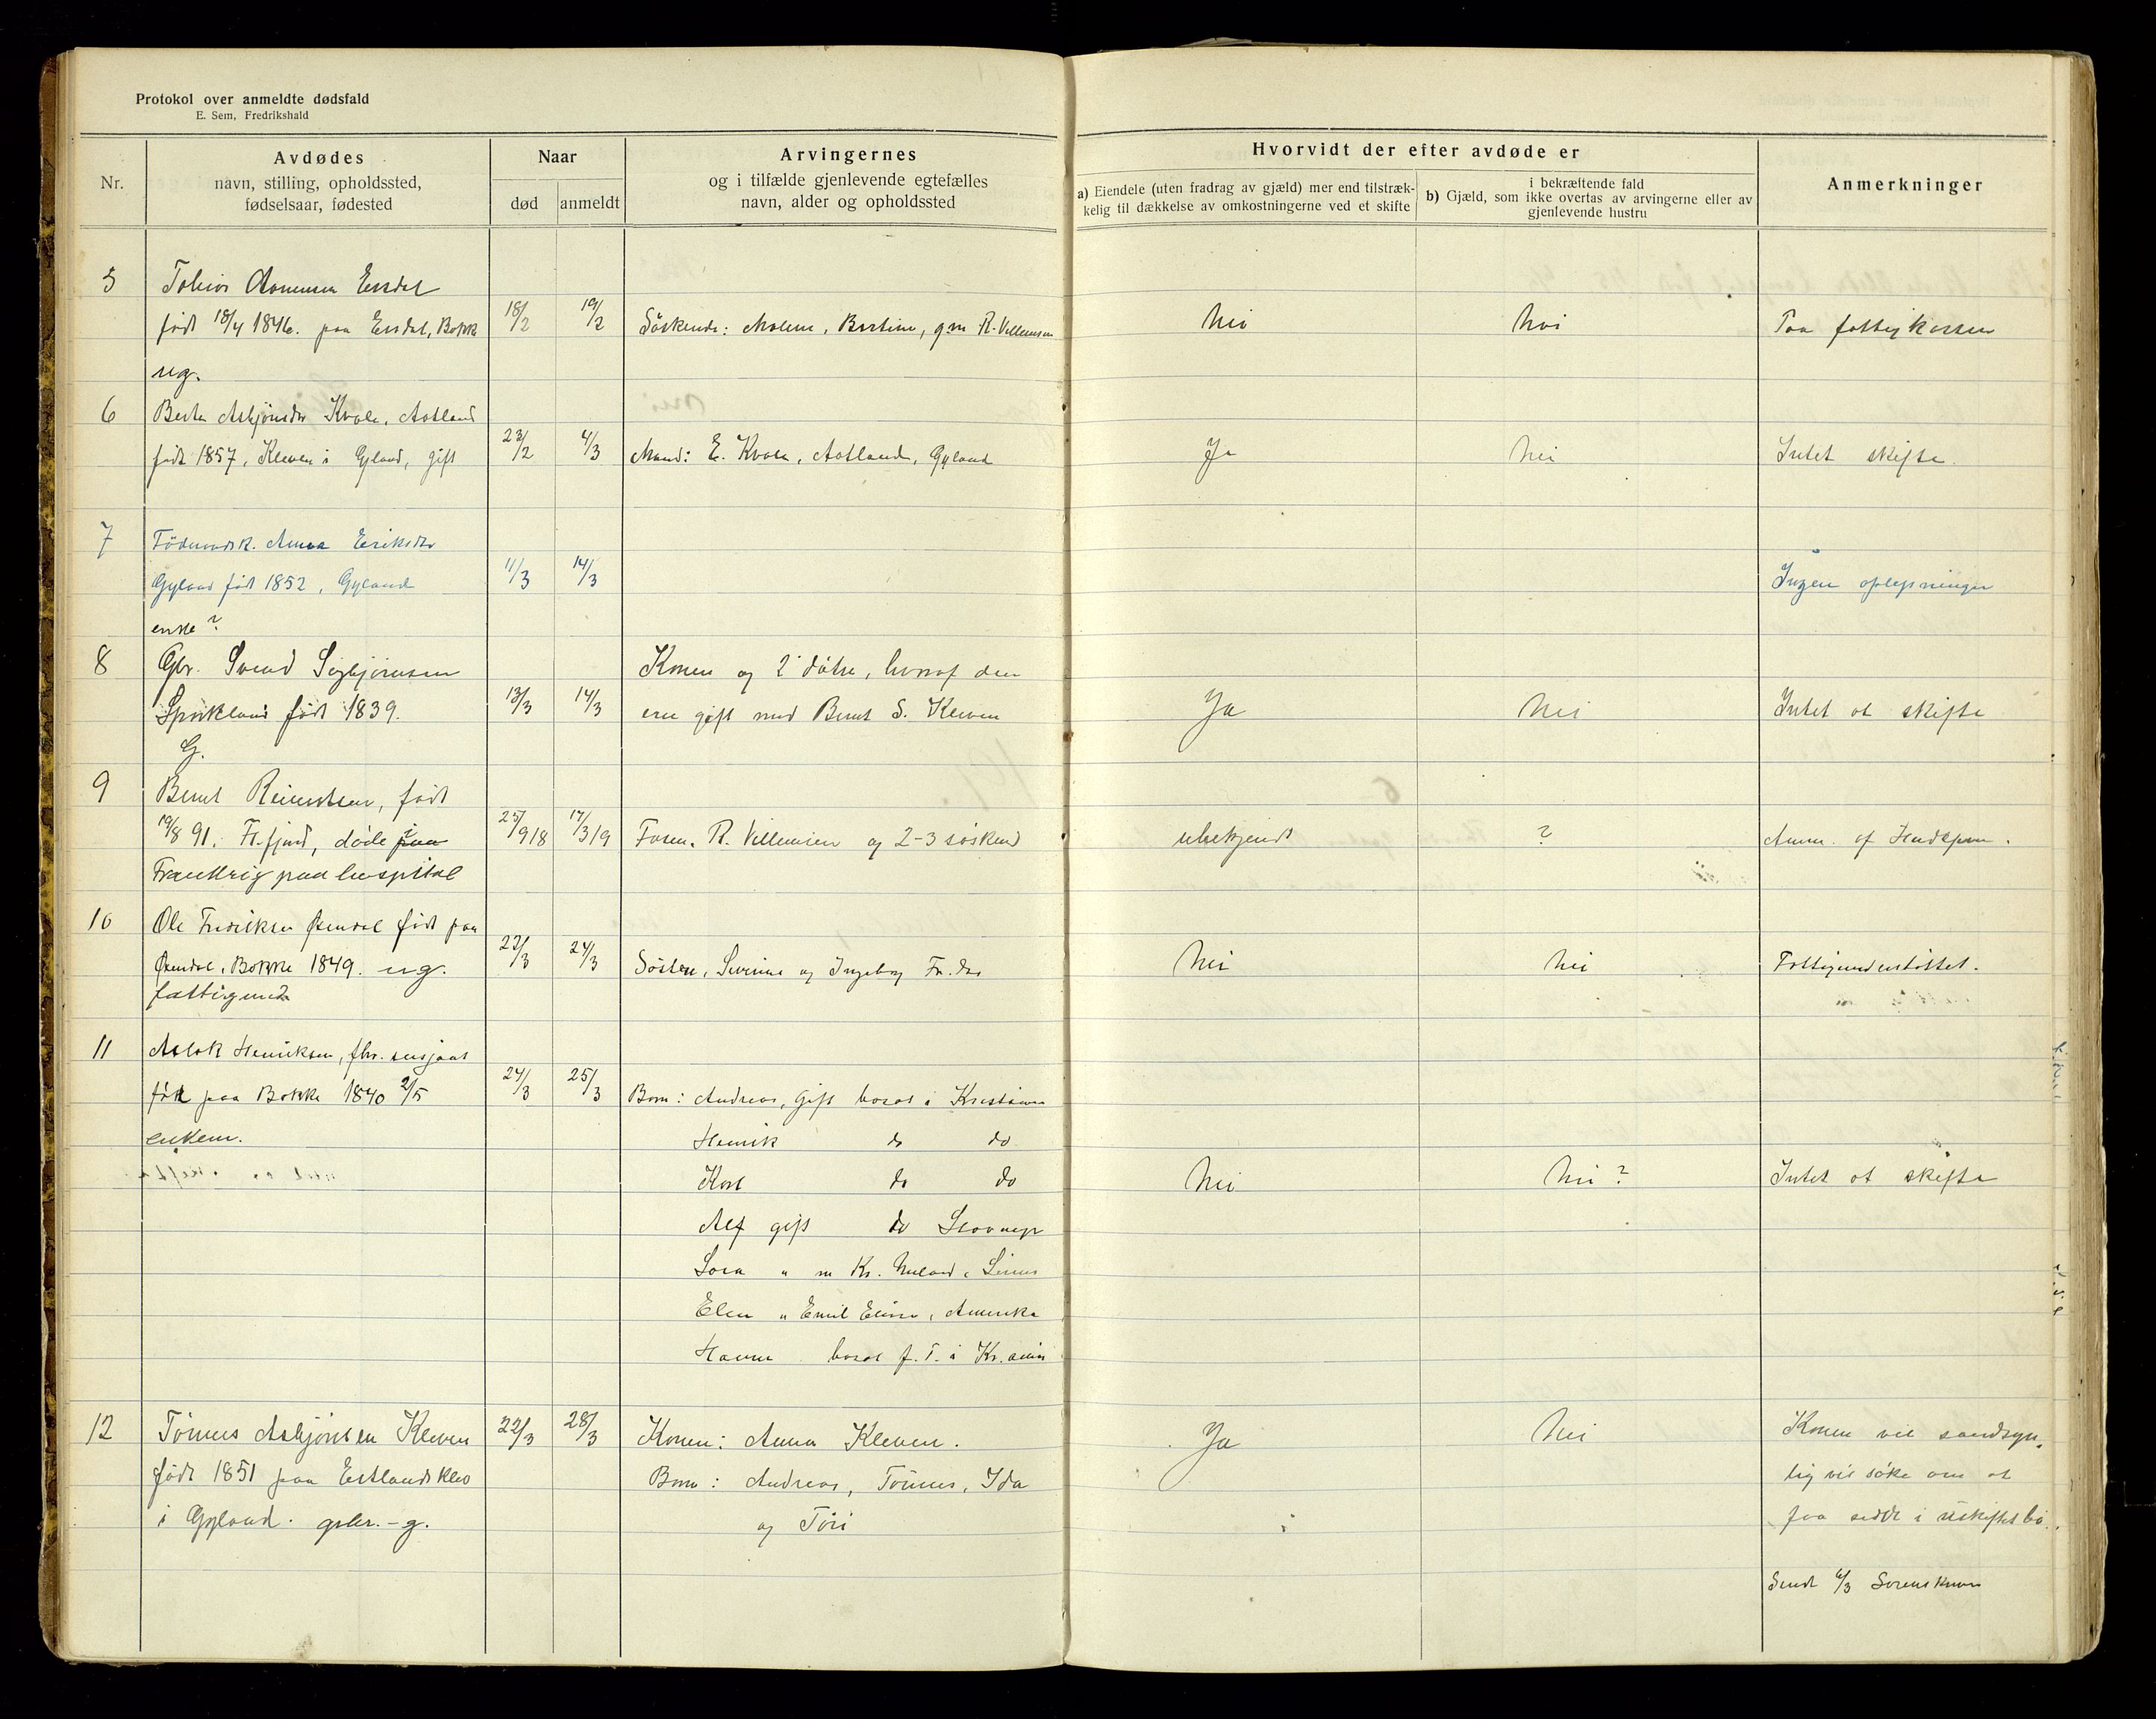 Protokol over anmeldte dødsfald
E. Sem, Fredrikshald
Nr.
Avdødes
navn, stilling, opholdssted,
fødselsaar, fødested
Naar
død
anmeldt
Arvingernes
og i tilfælde gjenlevende egtefælles
navn, alder og opholdssted
Hvorvidt der efter avdøde er
a) Eiendele (uten fradrag av gjæld) mer end tilstræk-
kelig til dækkelse av omkostningerne ved et skifte
i bekræftende fald
b) Gjæld, som ikke overtas av arvingerne eller av
gjenlevende hustru
Anmerkninger
5
Tobias
født 18/4 1846. paa
ug.
18/2 19/2
Söskende: Malene, Bertine, gm R. Villumsen
Nei
Nei
Paa fattigkassen
6
Berta Asbjörnsdr Kvale,
født 1857, Kleven i Gyland, gift
23/2 4/3
Mand: E. Kvale, Gyland
Ja
Nei
Intet skifte.
7
Anna Eriksdr
Gyland født 1852, Gyland
enke?
11/3 14/3
Ingen oplysninger
8
Gbr. Svend Sigbjörnsen
født 1839.
G.
13/3 14/3
Konen og 2 døtre, hvoraf den
ene gift med Bernt S. Kleven
Ja
Nei
Intet at skifte
9
Bernt Reinertsen, født
19/8 91. Fl.fjord, døde i paa
Frankrig paa hospital
25/918 17/319
R. Villumsen og 2-3 søskend
ubekjendt
?
Anm. af
10
Ole Fredriksen født paa
Bakke 1849. ug.
fattigund.
23/3 24/3
Søstre, Severine og Ingeborg Fr.dtr
Nei
Nei
Fattigunderstöttet.
11
Aslak Henriksen, fhv. sersjant
født paa Bakke 1840 2/5
enkem.
24/3 25/3
Born: Andreas, gift bosat i Kristiania
Henrik do do
Karl do do
Alf gift do Stavanger
Lova " m Kr.
Elen " Emil Amerika
Hanna bosat f.T. i Kr.ania
Nei
Nei?
Intet at skifte
12
Tönnes Asbjörnsen Kleven
født 1851 paa Eestlandsklev
i Gyland. gbr. - g.
22/3 28/3
Konen: Anna Kleven.
Born: Andreas, Tönnes, Ida
og Töri
Ja
Nei
Konen vil sandsyn-
ligvis söke om at
faa sidde i uskiftet bo.
Sendt Sorenskriver